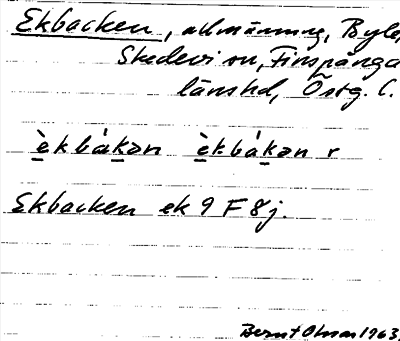 Ekbacken, allmänning, Byle,
Skedevi sn, Finspånga
länshd, Östg. l.
èkbákən èkbákən r
Ekbacken ek 9 F 8j.
Bernt Olsson 1963.